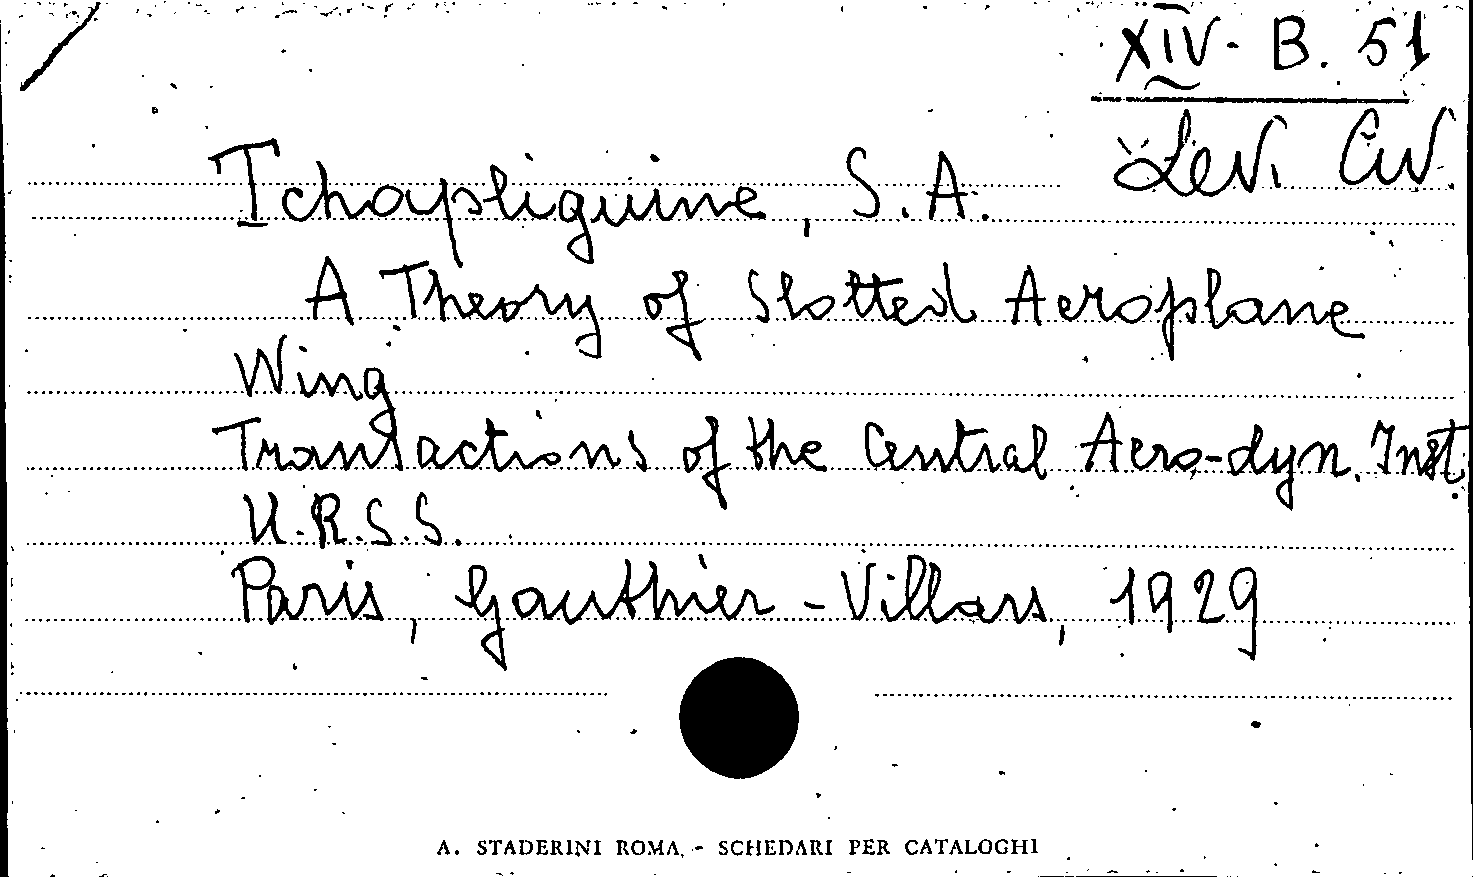 XIV- B. 51
Levi Civ.
Tchapliguine, S.A.
A Theory of Slotted Aeroplane
Wing
Transactions of the Central Aero-dyn. Inst
U.R.S.S.
Paris, Gauthier-Villars, 1929
A. STADERINI ROMA. - SCHEDARI PER CATALOGHI